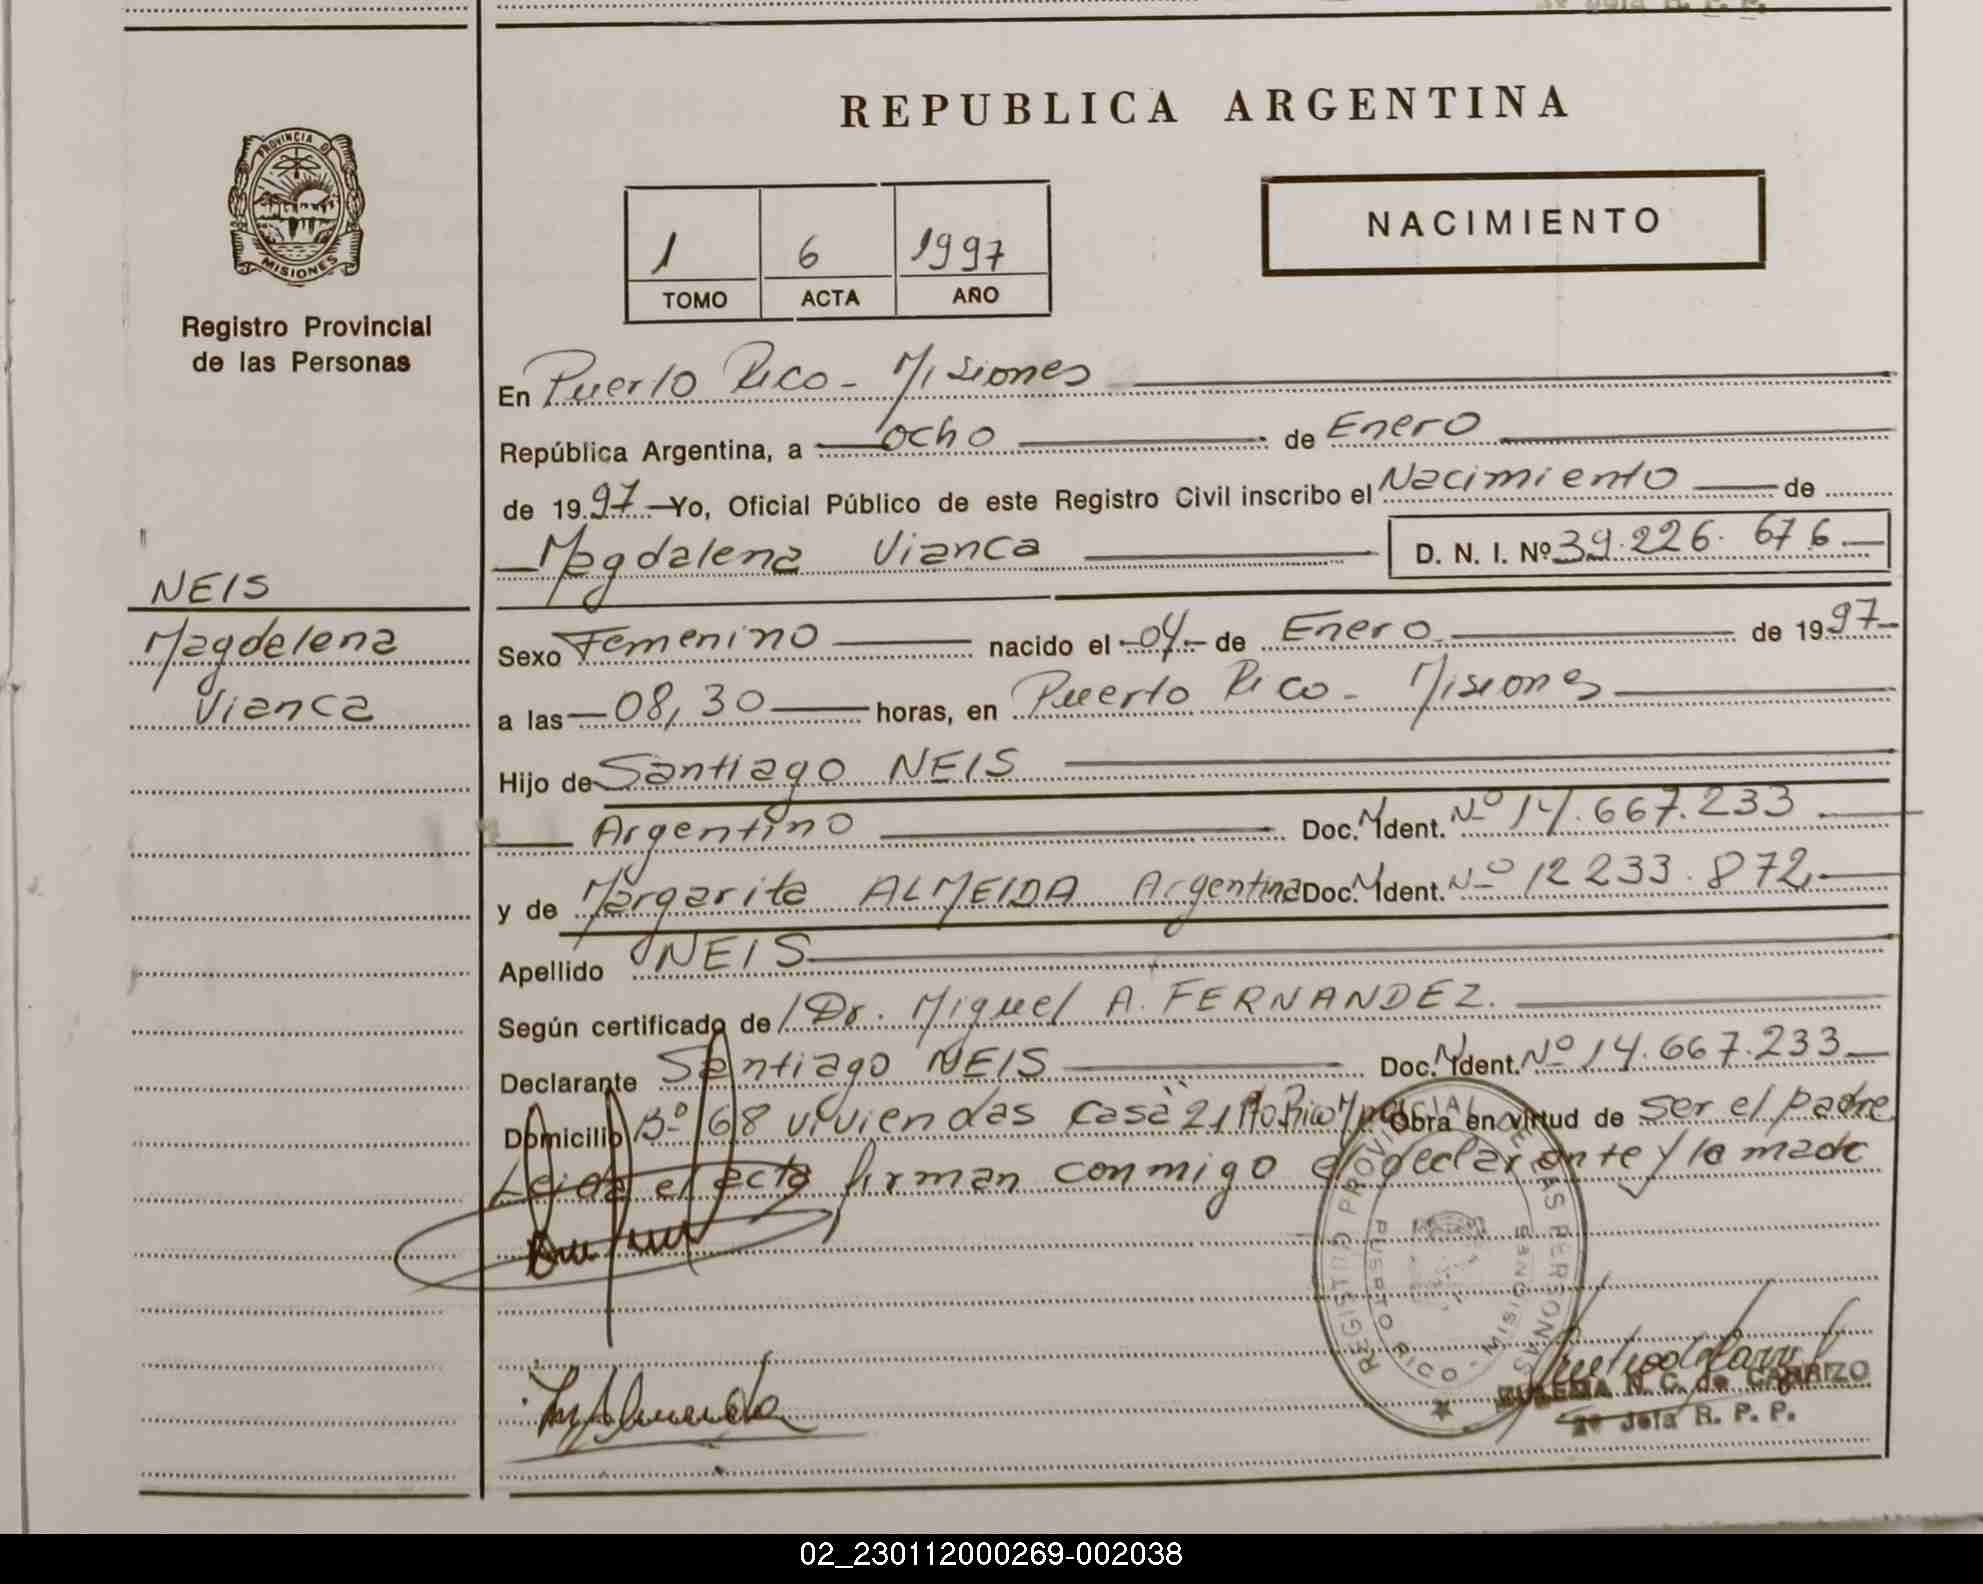 REPUBLICA ARGENTINA
PROVINCIA D
MISIONES
Registro Provincial
de las Personas
1 6 1997
TOMO ACTA AÑO
NACIMIENTO
En Puerto Rico - Misiones
República Argentina, a ocho de Enero
de 1997 Yo, Oficial Público de este Registro Civil inscribo el Nacimiento de
Magdalena Vianca D. N. I. Nº 39.226.676
NEIS
Magdalena
Vianca
Sexo Femenino nacido el 04 de Enero de 1997
a las 08,30 horas, en Puerto Rico - Misiones
Hijo de Santiago NEIS
Argentino Doc. N Ident. Nº 14.667.233
y de Margarita ALMEIDA Argentina Doc. N Ident. Nº 12 233.872
Apellido NEIS
Según certificado de Dr. Miguel A. FERNANDEZ.
Declarante Santiago NEIS Doc. N Ident. Nº 14.667.233
Domicilio Bº 68 viviendas casa 21 Pto. Rico Obra en virtud de ser el padre
Leida el acta firman conmigo el declarante y la madre
REGISTRO PROVINCIAL DE LAS PERSONAS
PUERTO RICO - MISIONES
N. C. de CARRIZO
2º Jefa R. P. P.
02_230112000269-002038